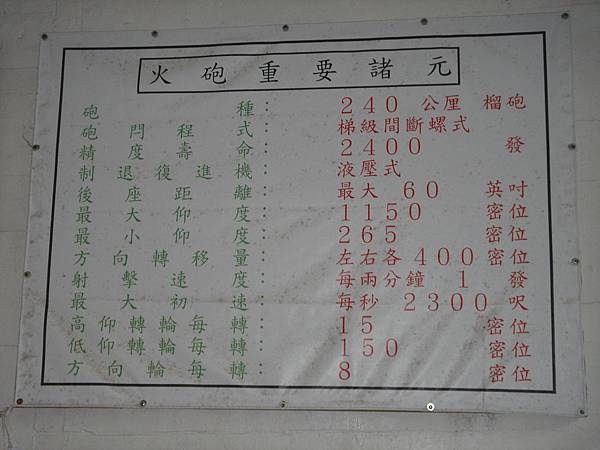 火砲重要諸元
砲種：240公厘 榴砲
砲閂程式：梯級間斷螺式
精度壽命：2400發
制退復進機：液壓式
後座距離：最大 60 英吋
最大仰度：1150 密位
最小仰度：265 密位
方向轉移量：左右各400密位
射擊速度：每兩分鐘 1 發
最大初速：每秒 2300 呎
高仰轉輪每轉：15 密位
低仰轉輪每轉：150 密位
方向輪每轉：8 密位